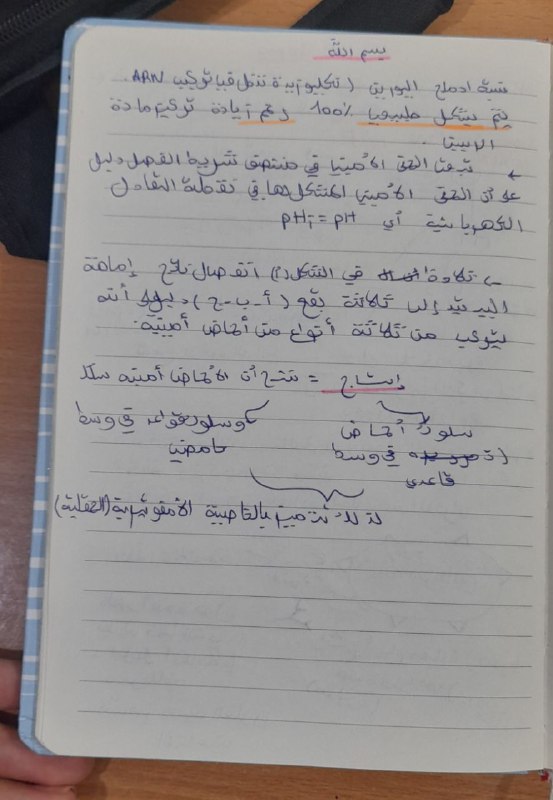 بسم الله
نسبة ادماج اليوريدين (نكليوتيدة تدخل في تركيب ARN
يتم بشكل طبيعيا 100% رغم زيادة تركيز مادة
تبقى الحمض الأميني في منتصف شريط الفصل دليل
على أن الحمض الأميني المتشكل لها في نقطة التعادل
الكهربائية أي pHi = pH
في الشكل (2) انفصال ناتج إماهة
الببتيد إلى ثلاثة بقع (أ - ب - ج) دليل على أنه
يتركب من ثلاثة أنواع من أحماض أمينية.
إستنتاج = نستنتج أن الأحماض أمينية تسلك
سلوك أحماض
في وسط
قاعدي
وسلوك قواعد في وسط
حامضي
لذلك تتميز بالخاصية الأمفوتيرية (الحمقلية)